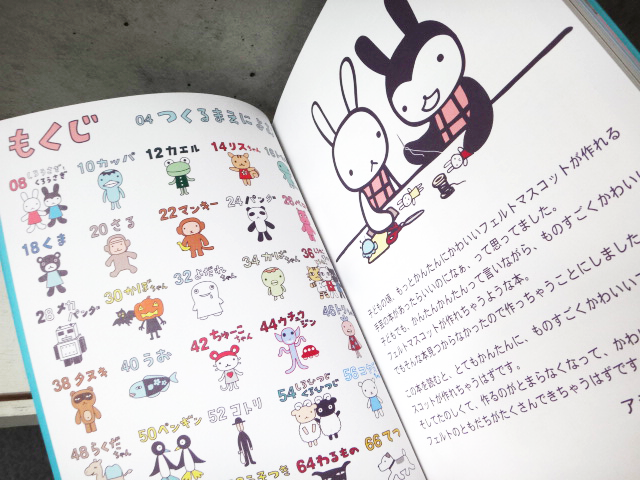 もくじ
04 つくるまえに
08 しろうさぎ くろうさぎ
10 カッパ
12 カエル
14 リスちゃん
18 くま
20 さる
22 マンキー
24 パンダ
28 メカパンダ
30 かぼちゃん
32 よだれちゃん
34 かばちゃん
38 タヌキ
40 うお
42 ちゅーこちゃん
44 チウチュウジン
48 らくだちゃん
50 ペンギン
52 コトリ
54 しろひつじ くろひつじ
64 わるもの
66 てつ
子どもの頃、もっとかんたんにかわいいフェルトマスコットが作れる
手芸の本があったらいいのになぁ、って思ってました。
子どもでも、かんたんかんたんって言いながら、ものすごくかわいい
フェルトマスコットが作れちゃうような本。
でもそんな本見つからなかったので作っちゃうことにしました
この本を読むと、とてもかんたんに、ものすごくかわいい
スコットが作れちゃうはずです。
そしてたのしくて、作るのがとまらなくなって、かわ
フェルトのともだちがたくさんできちゃうはずです